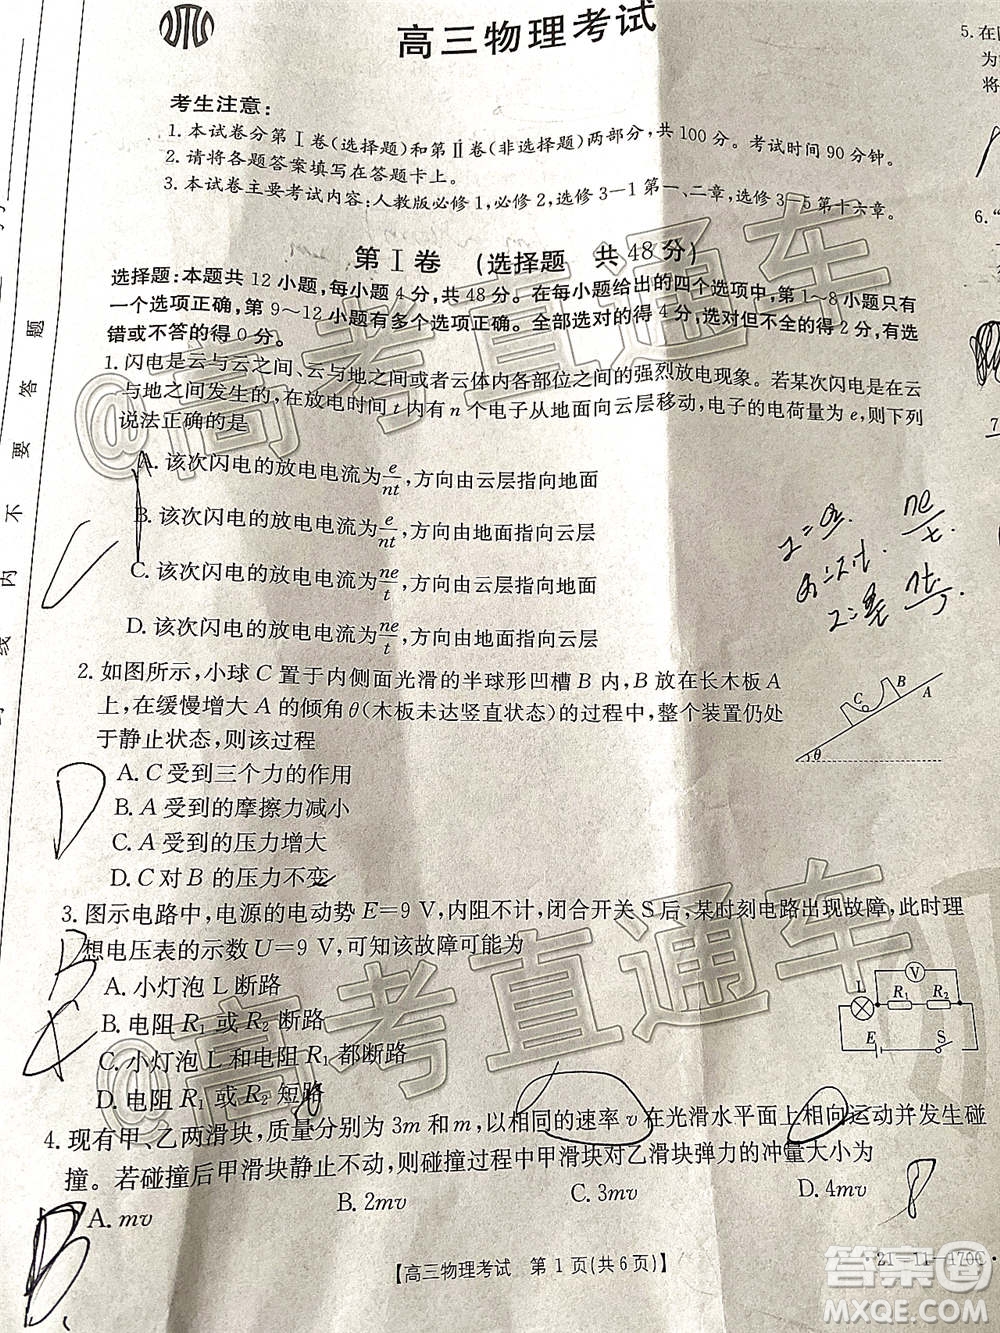 高三物理考试
考生注意:
1.本试卷分第Ⅰ卷(选择题)和第Ⅱ卷(非选择题)两部分,共100分。考试时间90分钟。
2.请将各题答案填写在答题卡上。
3.本试卷主要考试内容:人教版必修1,必修2,选修3-1第一、二章,选修3-5第十六章。
第Ⅰ卷 (选择题 共48分)
选择题:本题共12小题,每小题4分,共48分。在每小题给出的四个选项中,第1~8小题只有
一个选项正确,第9~12小题有多个选项正确。全部选对的得4分,选对但不全的得2分,有选
错或不答的得0分。
1.闪电是云与云之间、云与地之间或者云体内各部位之间的强烈放电现象。若某次闪电是在云
与地之间发生的,在放电时间t内有n个电子从地面向云层移动,电子的电荷量为e,则下列
说法正确的是
A.该次闪电的放电电流为e/nt,方向由云层指向地面
B.该次闪电的放电电流为e/nt,方向由地面指向云层
C.该次闪电的放电电流为ne/t,方向由云层指向地面
D.该次闪电的放电电流为ne/t,方向由地面指向云层
2.如图所示,小球C置于内侧面光滑的半球形凹槽B内,B放在长木板A
上,在缓慢增大A的倾角θ(木板未达竖直状态)的过程中,整个装置仍处
于静止状态,则该过程
A.C受到三个力的作用
B.A受到的摩擦力减小
C.A受到的压力增大
D.C对B的压力不变
C B A
θ
3.图示电路中,电源的电动势E=9 V,内阻不计,闭合开关S后,某时刻电路出现故障,此时理
想电压表的示数U=9 V,可知该故障可能为
A.小灯泡L断路
B.电阻R₁或R₂断路
C.小灯泡L和电阻R₁都断路
D.电阻R₁或R₂短路
V
L R₁ R₂
E S
4.现有甲、乙两滑块,质量分别为3m和m,以相同的速率v在光滑水平面上相向运动并发生碰
撞。若碰撞后甲滑块静止不动,则碰撞过程中甲滑块对乙滑块弹力的冲量大小为
A.mv B.2mv C.3mv D.4mv
【高三物理考试 第1页(共6页)】
·21-11-170C·
题
答
要
不
内
线
5.在
为
将
6.“
7
ne/t
B
@高考直通车
@高考直通车
答案圈
MXQE.COM